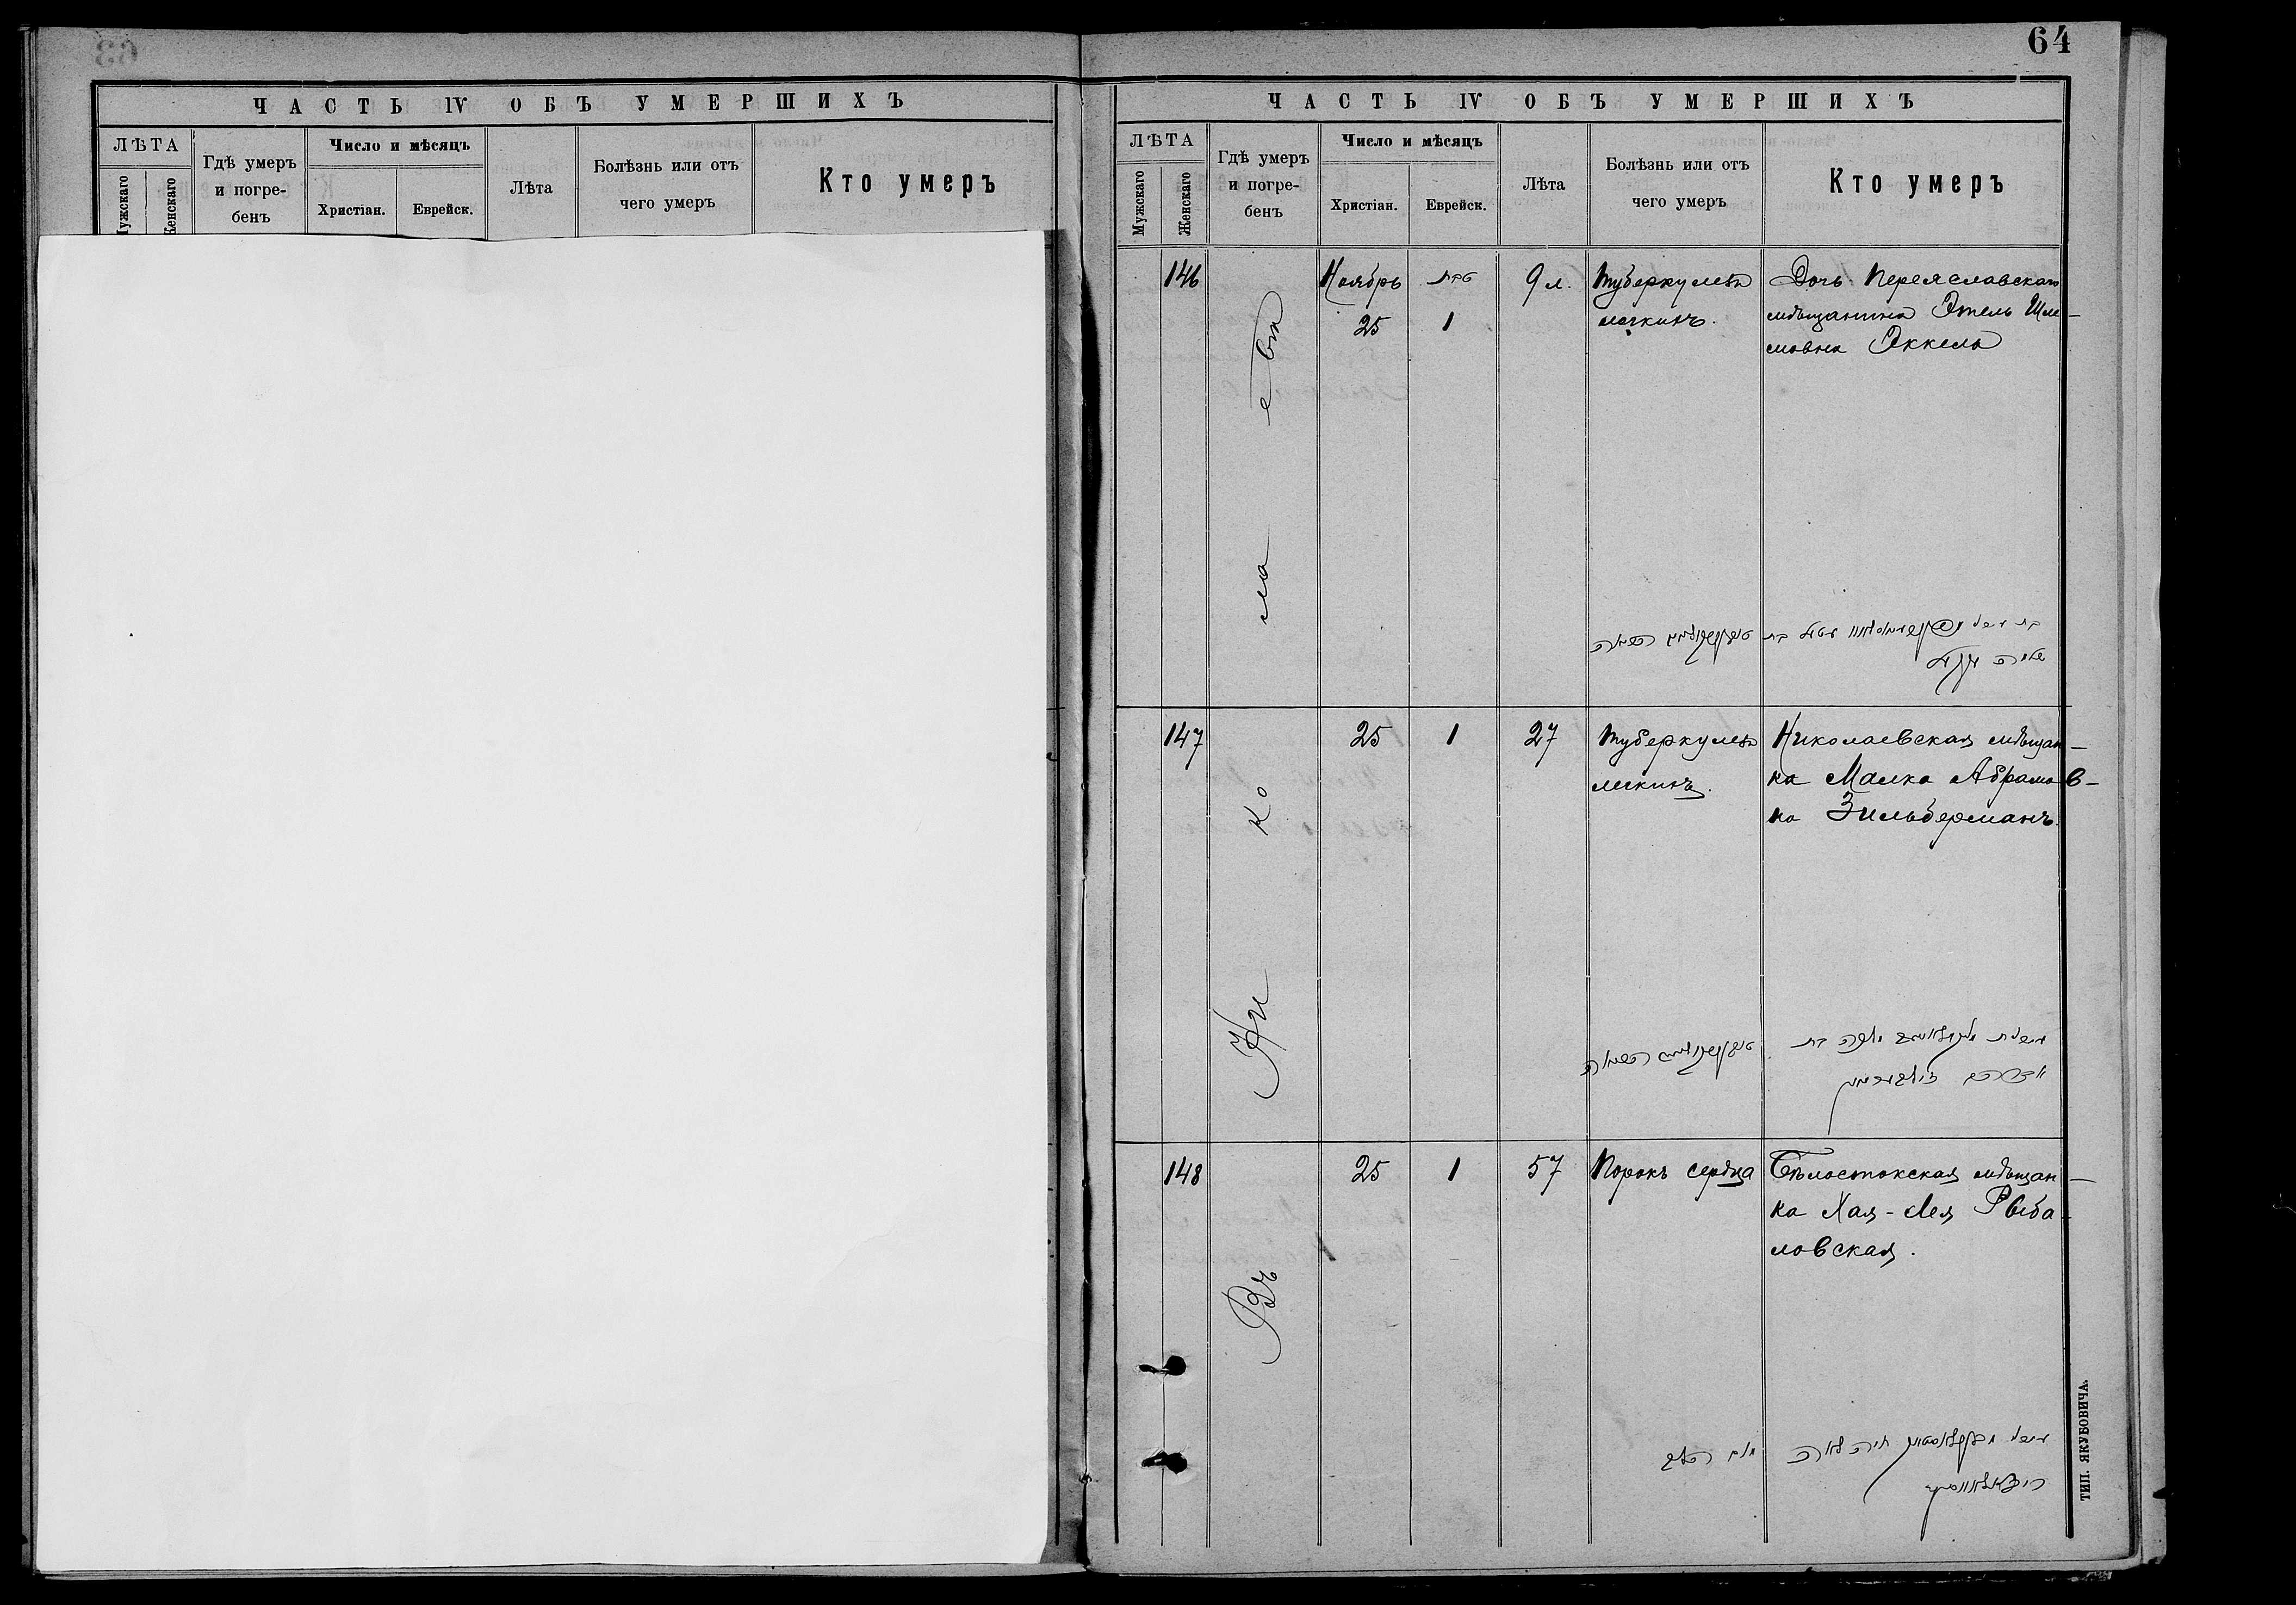 64
ЧАСТЬ IV ОБЪ УМЕРШИХЪ
ЛѢТА
Мужскаго
Женскаго
Гдѣ умеръ
и погре-
бенъ
Число и мѣсяцъ
Христіан.
Еврейск.
Лѣта
Болѣзнь или отъ
чего умеръ
Кто умеръ
ЧАСТЬ IV ОБЪ УМЕРШИХЪ
ЛѢТА
Мужскаго
Женскаго
Гдѣ умеръ
и погре-
бенъ
Число и мѣсяцъ
Христіан.
Еврейск.
Лѣта
Болѣзнь или отъ
чего умеръ
Кто умеръ
Въ Николаевѣ
146
Ноябрь
25
טבת
1
9 л.
Туберкулезъ
легкихъ.
Дочь Переяславскаго
мѣщанина Этель Шле-
мовна Эккель
147
25
1
27
Туберкулезъ
легкихъ.
Николаевская мѣщан-
ка Малка Абрамов-
на Зильберманъ
148
25
1
57
Порокъ сердца
Бѣлостокская мѣщан-
ка Хая-Лея Рыба-
ловская.
ТИП. ЯКУБОВИЧА.